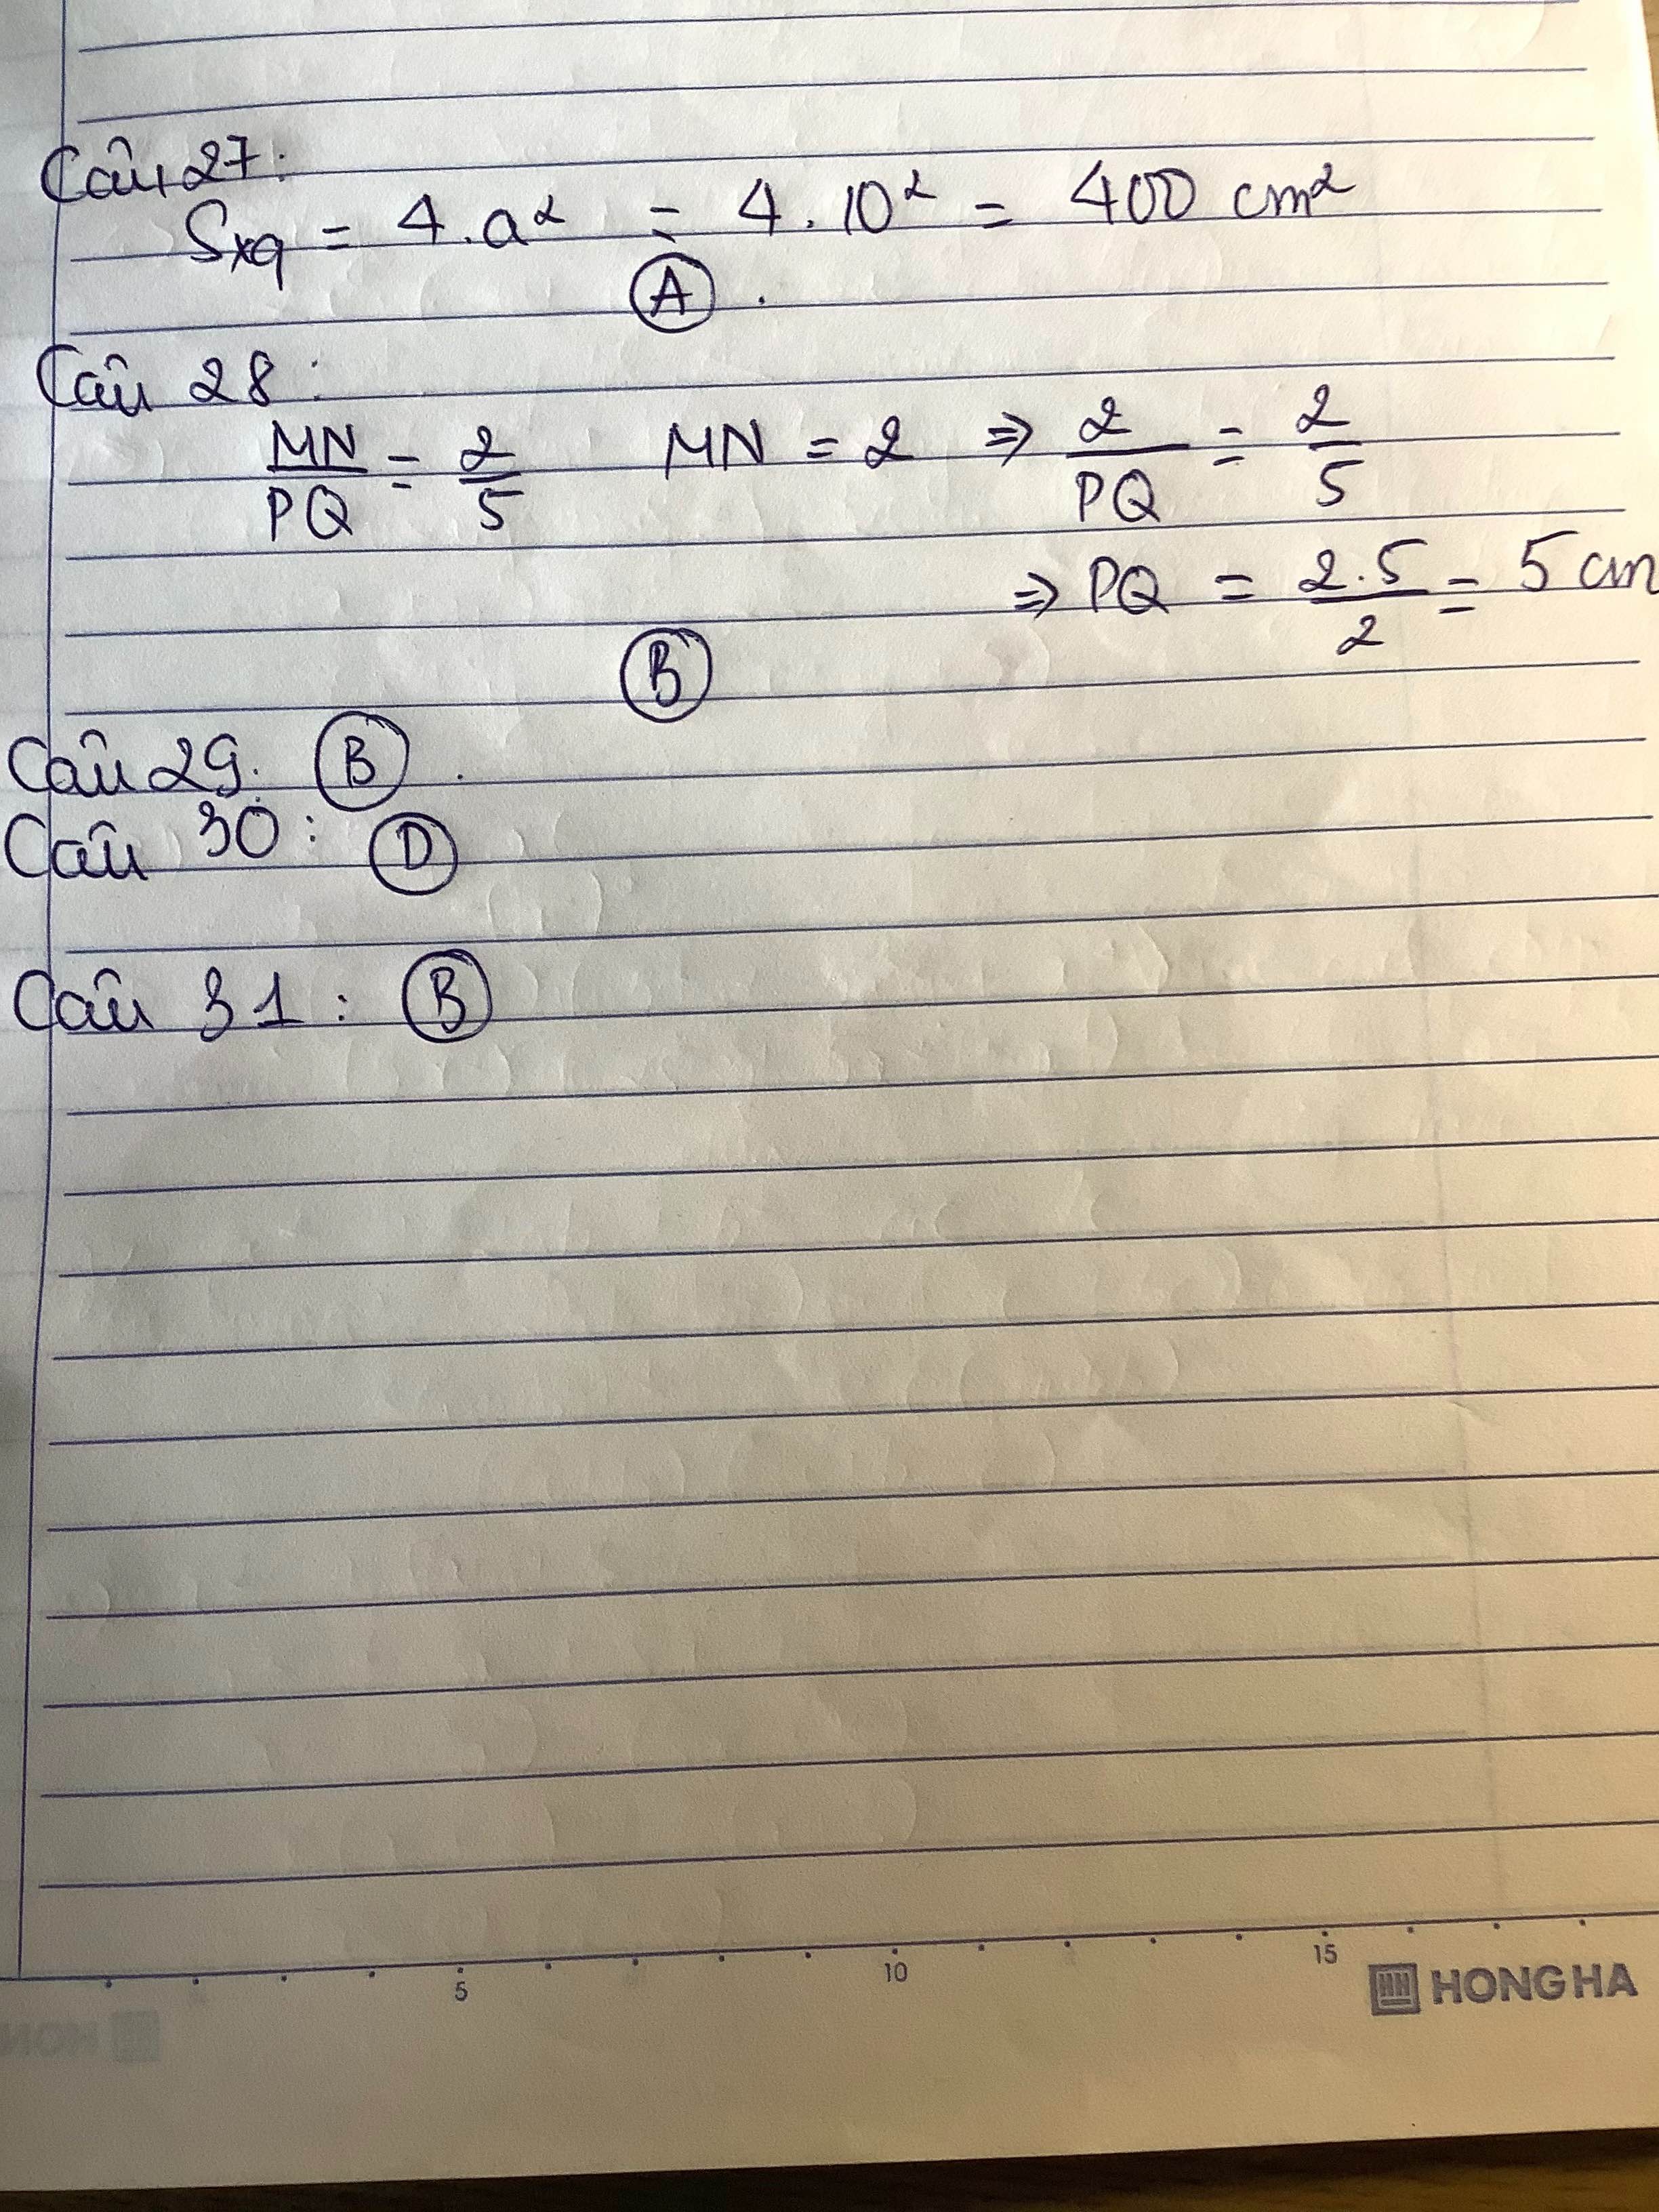 Câu 27:
Sxq = 4.a² = 4.10² = 400 cm²
A.
Câu 28:
MN/PQ = 2/5 MN = 2 ⇒ 2/PQ = 2/5
⇒ PQ = 2.5/2 = 5 cm
B
Câu 29: B.
Câu 30: D
Câu 31: B
5 10 15
HONG HA